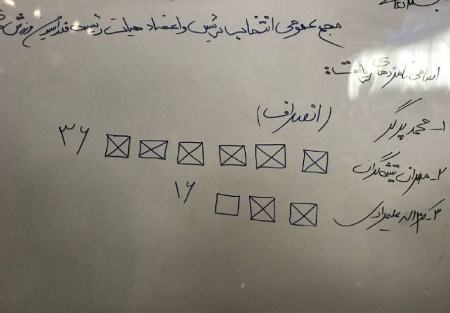 مجمع عمومی انتخاب رئیس و اعضاء هیات رئیسه فدراسیون ورزش
اسامی نامزدهای ریاست:
۱- محمد پرگر (انصراف)
۲- مهران تیشه‌گران ۳۶
۳- علیمرادی ۱۶